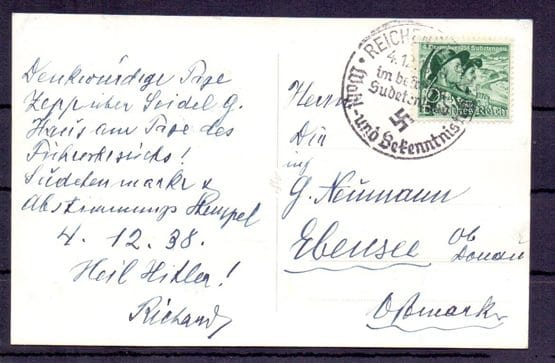 Denkwürdige Tage
Zepp über Seidel G.
Haus am Tage des
Führerbesuchs!
Sudetenmarke &
Abstimmungs Stempel
4. 12. 38.
Heil Hitler!
Richard
REICHEN
4.12
im be
Sudeten
Wahl- und Bekenntnis
4. Dezember 1938 Sudetenland
Deutsches Reich
Herrn
G. Neumann
Ebensee
Ob
Donau
Ostmark